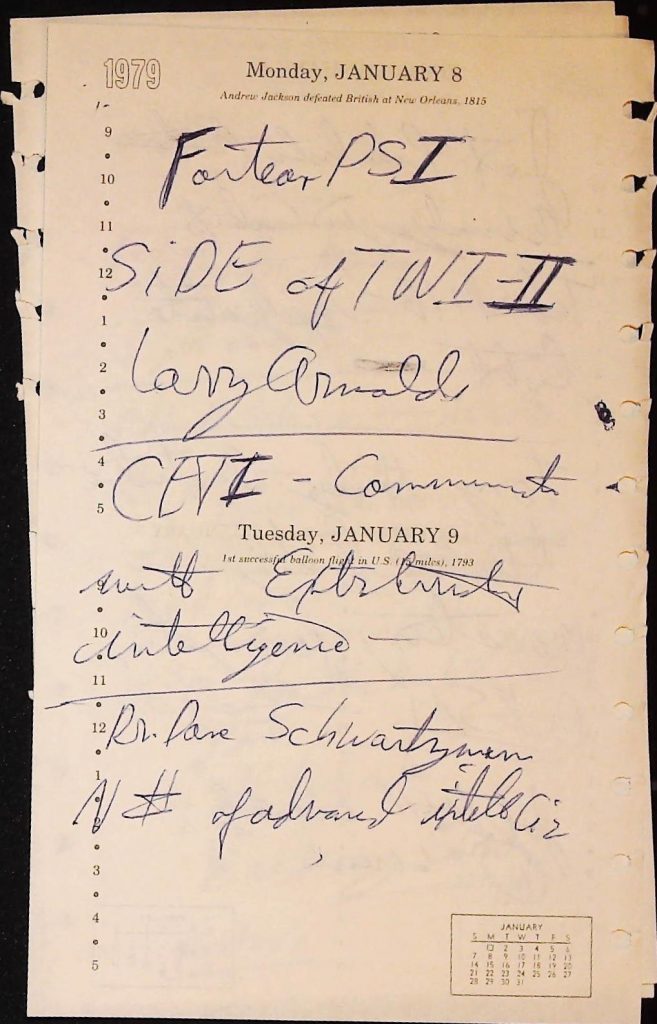 1979
Monday, JANUARY 8
Andrew Jackson defeated British at New Orleans, 1815
9
Fortean PSI
10
11
SiDE of TWI-II
12
1
Larry Arnold
2
3
4
CETI - Communicate
5
Tuesday, JANUARY 9
1st successful balloon flight in U.S. (15 miles), 1793
with
9
10
intelligence -
11
12
Dr. Dave Schwartzman
1
N # of advanced
3
4
5
JANUARY
S M T W T F S
1 2 3 4 5 6
7 8 9 10 11 12 13
14 15 16 17 18 19 20
21 22 23 24 25 26 27
28 29 30 31